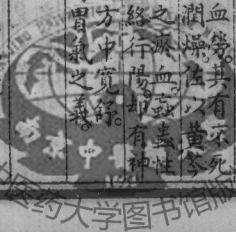 血勞。其有不死
潤燥。佐以黄芩
之瘀血。蝱蟲性
絡行陽。却有神
方中寬緩。
胃氣之義。
中医药大学图书馆